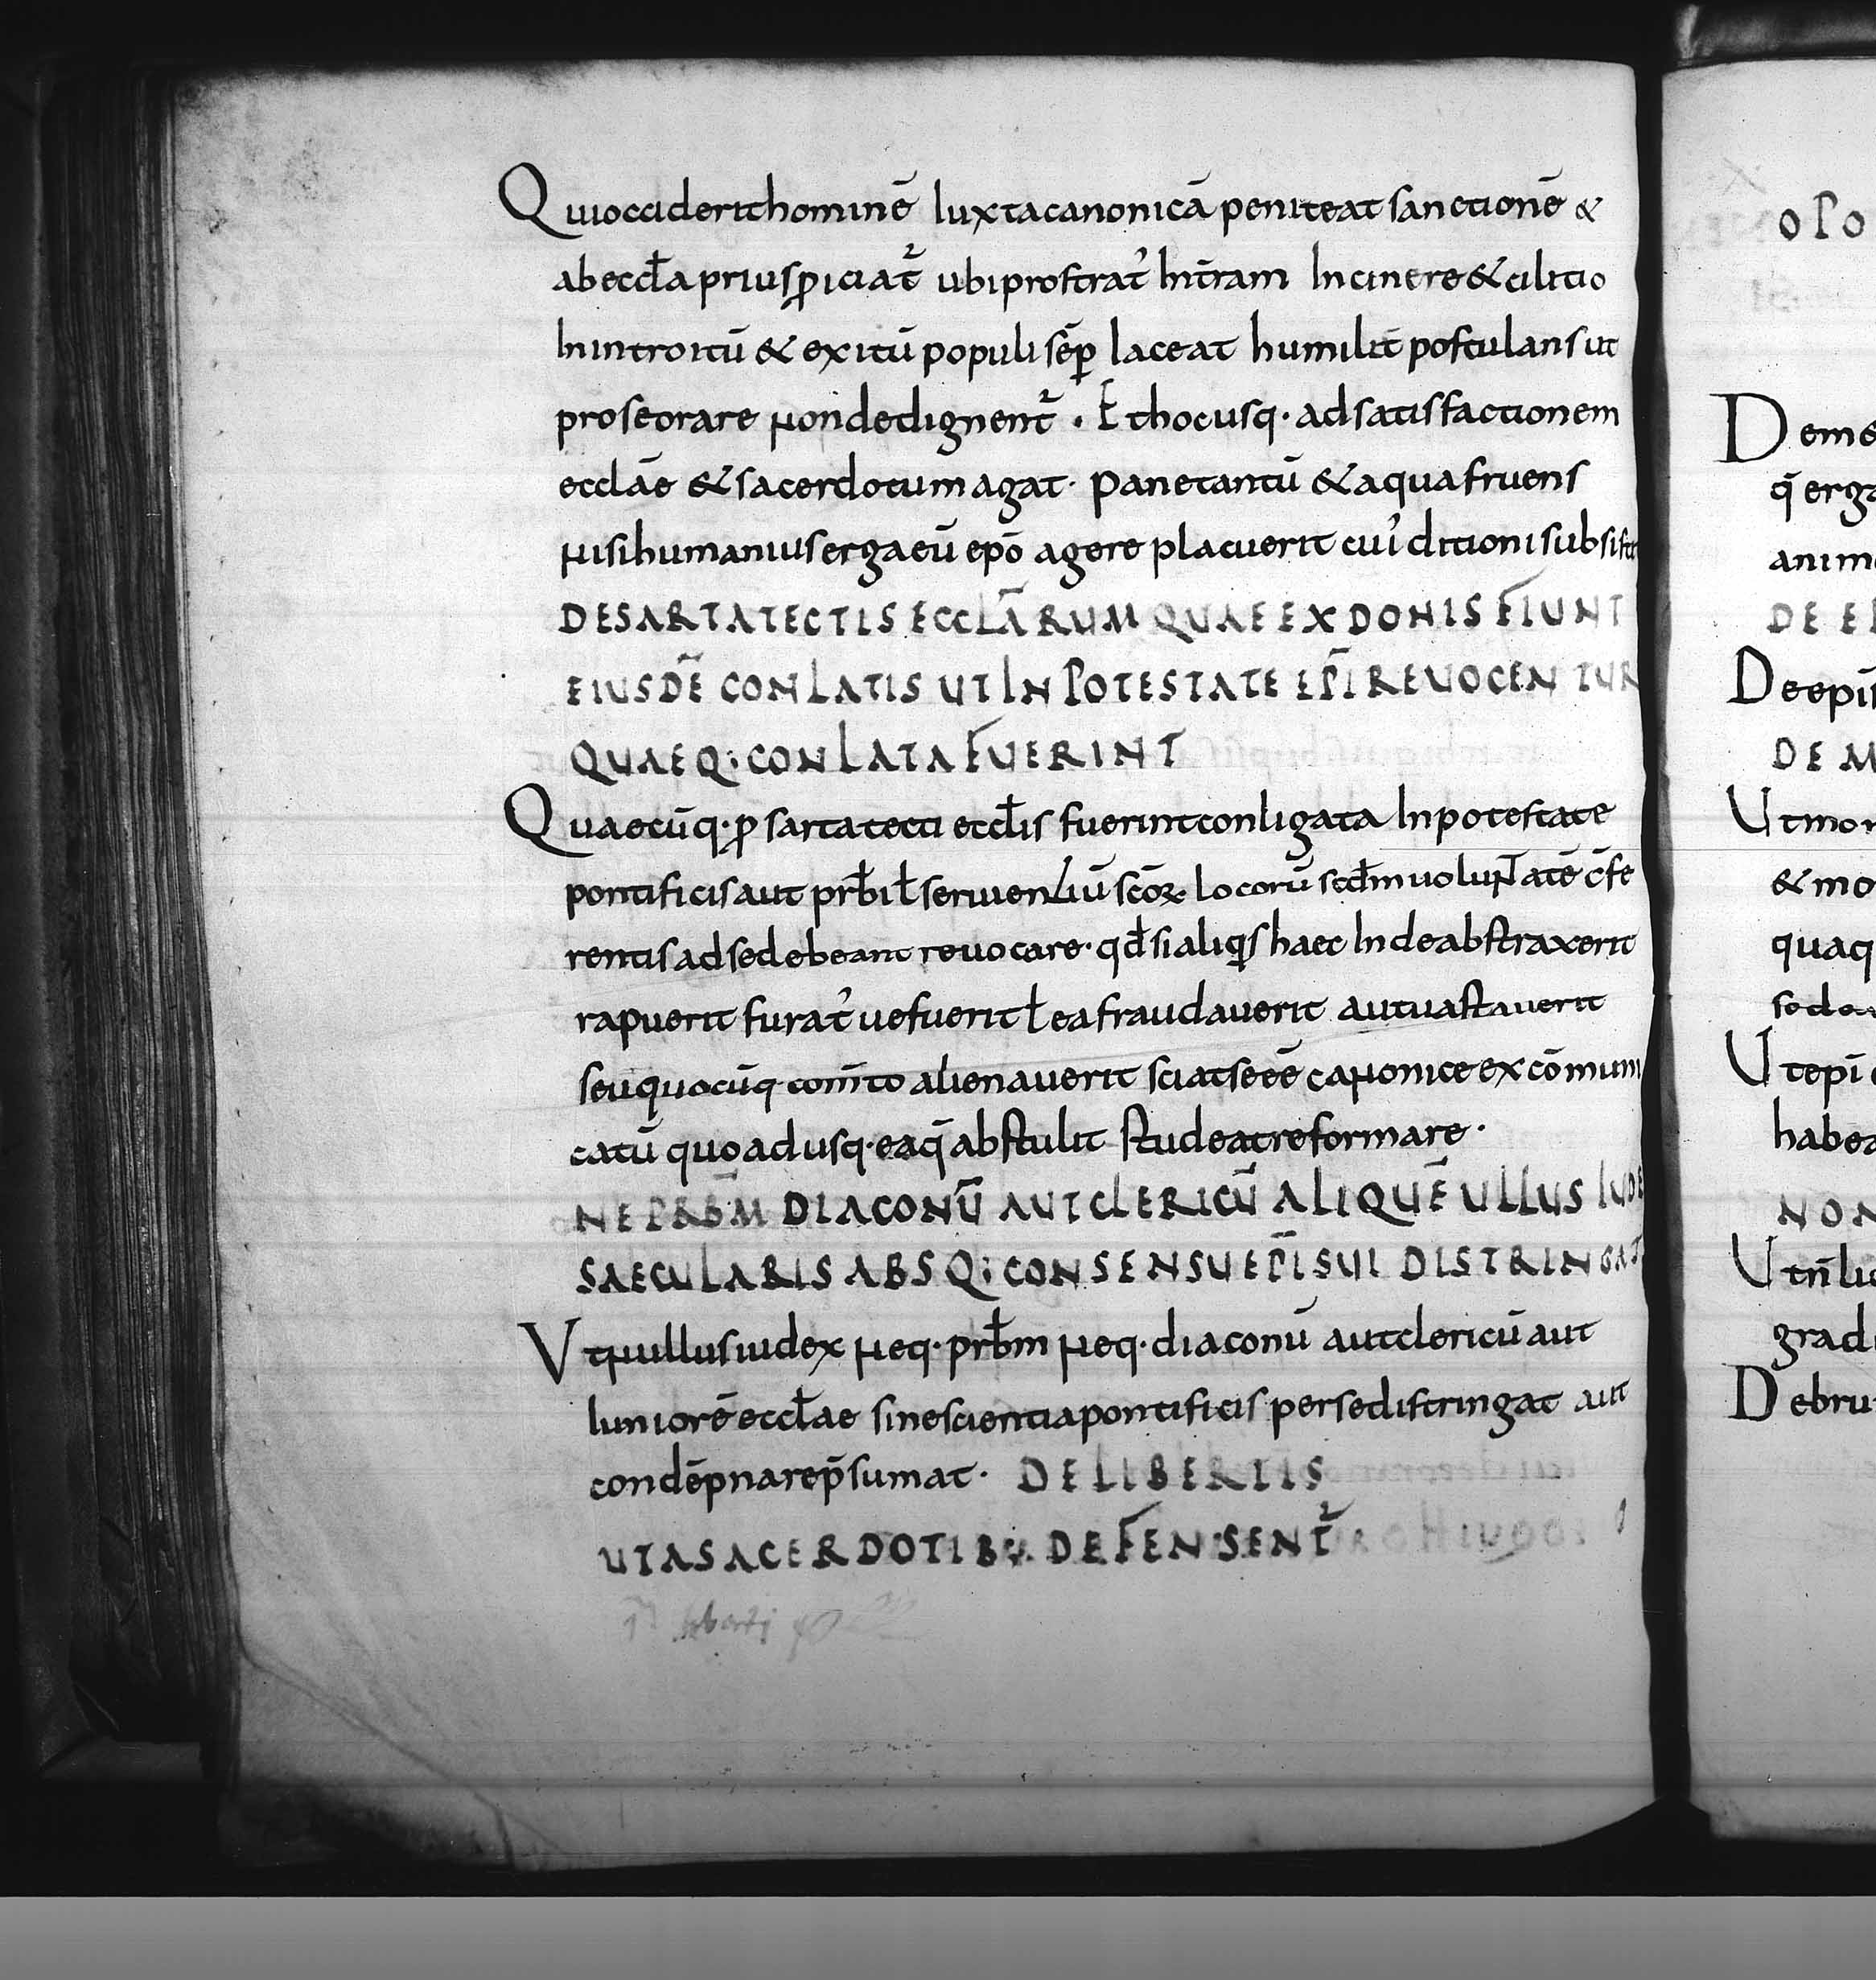 Quiocciderithominē Iuxtacanonicā peniteat sanctionē &
abeccłaprius ꝓiciat᷑ ubiprostrat᾽ Int̄ram Incinere&cilicio
Inintroitū & exitū populi sēꝑ Iaceat humilit̄ postulansut
proseorare nondedignent᷑ . Ethocusq· adsatisfactionem
ecclāe & sacerdotumagat· panetantū & aquafruens
nisihumaniusergaeū ep̄o agere placuerit cui᾽ ditionisubsist
DESARTATECTIS ECCLĀRUM QUAE EX DONIS FIUNT
EIUSDĒ CONLATIS UT IN POTESTATE EP̄I REUOCENTUR
QUAEQ; CONLATA FUERINT
Quaecūq· ꝓ sartatecti eccłis fuerintconligata Inpotestate
pontificisaut prƀił seruientiū sc̄oꝝ Locorū scd̄muoluntatē c̄fe
rentisadsedebeant reuocare· qd̄sialiqis haec Indeabstraxerit
rapuerit furat᾽ uefuerit ł eafraudauerit autuastauerit
seuquocūq com̄to alienauerit sciatseēē canonice excōmuni
catū quoadusq· eaq̄ abstulit studeatreformare·
NE PRƁM DIACONŪ AUT CLERICŪ ALIQUĒ ULLUS IUDE
SAECULARIS ABSQ; CONSENSU EP̄I SUI DISTRINGAT
Vtnullusiudex neq· prƀm neq· diaconū autclericū aut
Iuniorē eccłae sinescientiapontificis persedistringat aut
condēpnarep̄sumat· DE LIBERTIS
UT A SACERDOTIBU· DEFENSENT᷑
OPO
Deme
q̄ erga
anim
DE EP
Deepis
DE M
Utmon
& mo
quaq
sede
Utepī
habea
NON
Utn̄lic
gradu
Debru